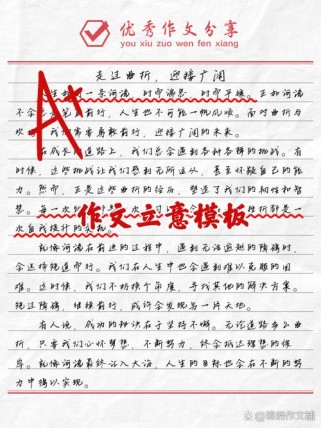 优秀作文分享
you xiu zuo wen fen xiang
走过曲折，迎接广阔
A+
生 一条河流，时而湍急，时而平缓。正如河流
不会 直前行，人生也不可能一帆风顺。面对曲折与
坎 我们需要勇敢前行，迎接广阔的未来。
在成长的道路上，我们总会遇到各种各样的挑战。有
时候，这些挑战让我们感到无所适从，甚至怀疑自己的能
力。然而，正是这些曲折的经历，塑造了我们的韧性和智
慧。每一次 折都是一
次自我提升的
作文立意模板
就像河流在前进的过程中，遇到无法逾越的障碍时，
会选择绕道而行。我们在人生中也会遇到难以克服的困
难。这时候，我们不妨换个角度，寻找其他的解决方案。
绕过障碍，继续前行，或许会发现另一片天地。
有人说，成功的秘诀在于坚持不懈。无论道路多么曲
折，只要我们心怀梦想，不断努力，终会抵达理想的彼
岸。就像河流最终汇入大海，人生的目标也会在不断的努
力中得以实现。